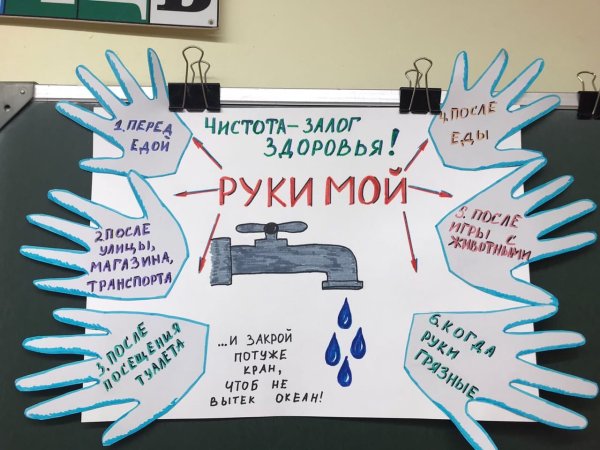 ЧИСТОТА-ЗАЛОГ
ЗДОРОВЬЯ!
РУКИ МОЙ
1. ПЕРЕД
ЕДОЙ
2. ПОСЛЕ
УЛИЦЫ,
МАГАЗИНА,
ТРАНСПОРТА
3. ПОСЛЕ
ПОСЕЩЕНИЯ
ТУАЛЕТА
4. ПОСЛЕ
ЕДЫ
5. ПОСЛЕ
ИГРЫ С
ЖИВОТНЫМИ
6. КОГДА
РУКИ
ГРЯЗНЫЕ
...И ЗАКРОЙ
ПОТУЖЕ
КРАН,
ЧТОБ НЕ
ВЫТЕК ОКЕАН!